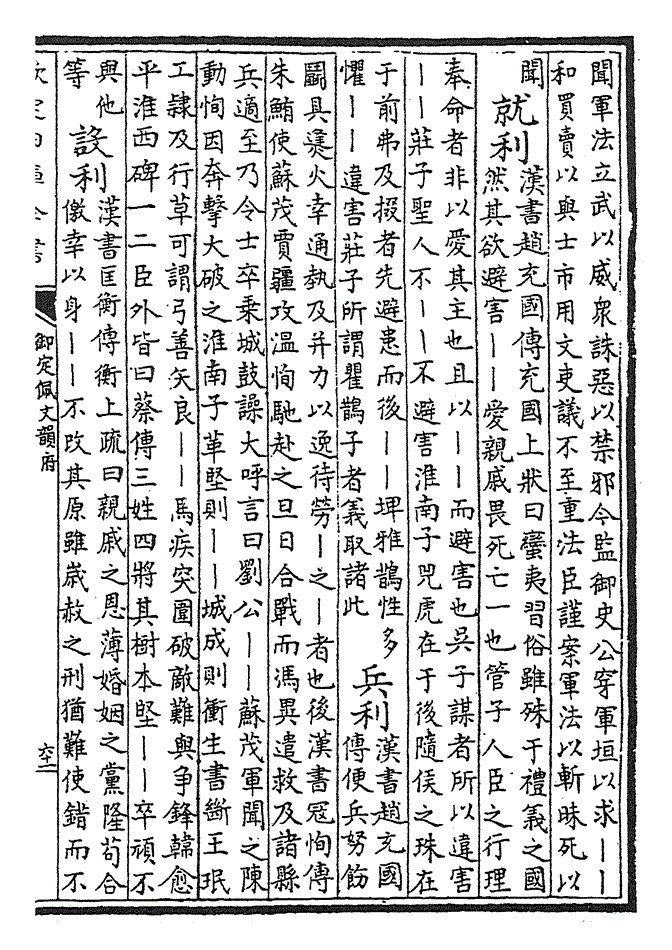 聞軍法立武以威衆誅惡以禁邪今監御史公穿軍垣以求——
和買賣以與士市用文吏議不至重法臣謹案軍法以斬昧死以
聞
就利
漢書趙充國傳充國上狀曰蠻夷習俗雖殊于禮義之國
然其欲避害——愛親戚畏死亡一也管子人臣之行理
奉命者非以愛其主也且以——而避害也吳子謀者所以違害
——莊子聖人不——不避害淮南子兕虎在于後隨侯之珠在
于前弗及掇者先避患而後——埤雅鵲性多
懼——違害莊子所謂瞿鵲子者義取諸此
兵利
漢書趙充國
傳便兵弩飭
鬭具㷭火幸通埶及并力以逸待勞—之—者也後漢書寇恂傳
朱鮪使蘇茂賈彊攻溫恂馳赴之旦日合戰而馮異遣救及諸縣
兵適至乃令士卒乗城鼓譟大呼言曰劉公——蘇茂軍聞之陳
動恂因奔擊大破之淮南子革堅則——城成則衝生書斷王珉
工隷及行草可謂弓善矢良——馬疾突圍破敵難與争鋒韓愈
平淮西碑一二臣外皆曰蔡傳三姓四將其樹本堅——卒頑不
與他
等
設利
漢書匡衡傳衡上疏曰親戚之恩薄婚姻之黨隆苟合
徼幸以身——不改其原雖歲赦之刑猶難使錯而不
欽定四庫全書
御定佩文韻府